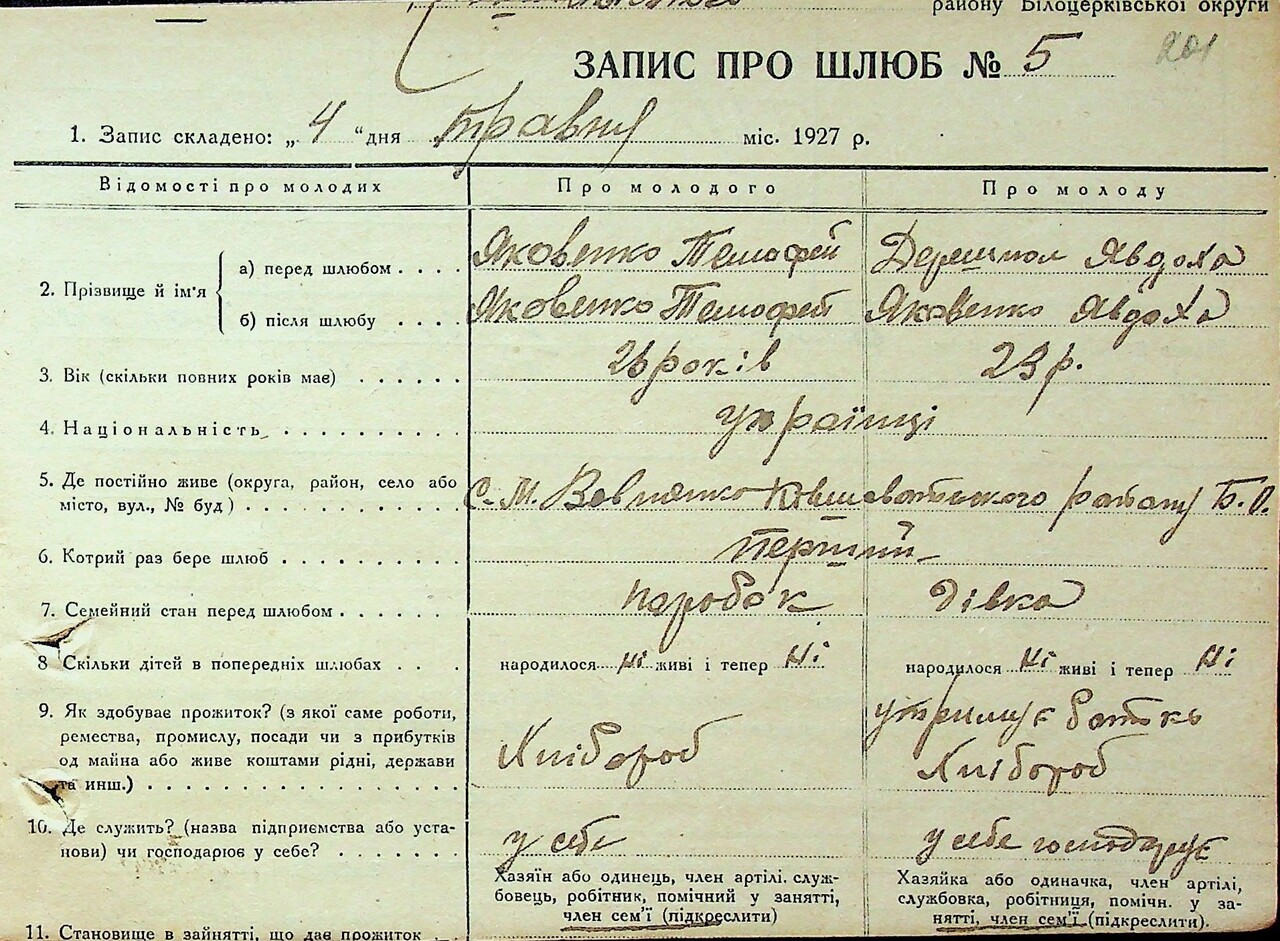 району Білоцерківської округи
ЗАПИС ПРО ШЛЮБ № 5
201
1. Запис складено: „ 4 “ дня травня міс. 1927 р.
Відомості про молодих Про молодого Про молоду
2. Прізвище й ім'я
а) перед шлюбом . . . . Яковенко Темофей Явдоха
б) після шлюбу . . . . Яковенко Темофей Яковенко Явдоха
3. Вік (скільки повних років має) . . . . . . 26 років 23 р.
4. Національність . . . . . . . . . . українці
5. Де постійно живе (округа, район, село або
місто, вул., № буд) . . . . . . . . . . . . С. М. Вовнянко Ківшоватського району Б. О.
6. Котрий раз бере шлюб . . . . . . . . . . перший
7. Семейний стан перед шлюбом . . . . . . . паробок дівка
8 Скільки дітей в попередніх шлюбах . . . народилося ні живі і тепер ні народилося ні живі і тепер ні
9. Як здобуває прожиток? (з якої саме роботи,
ремества, промислу, посади чи з прибутків
од майна або живе коштами рідні, держави
та инш.) . . . . . . . . . . . . . . . . . .
Хлібороб
утримує батько
Хлібороб
10. Де служить? (назва підприємства або уста-
нови) чи господарює у себе? . . . . . . . у себе у себе господарує
Хазяїн або одинець, член артілі. служ-
бовець, робітник, помічний у занятті,
член сем'ї (підкреслити)
Хазяйка або одиначка, член артілі,
службовка, робітниця, помічн. у за-
нятті, член сем'ї (підкреслити).
11. Становище в зайнятті, що дає прожиток